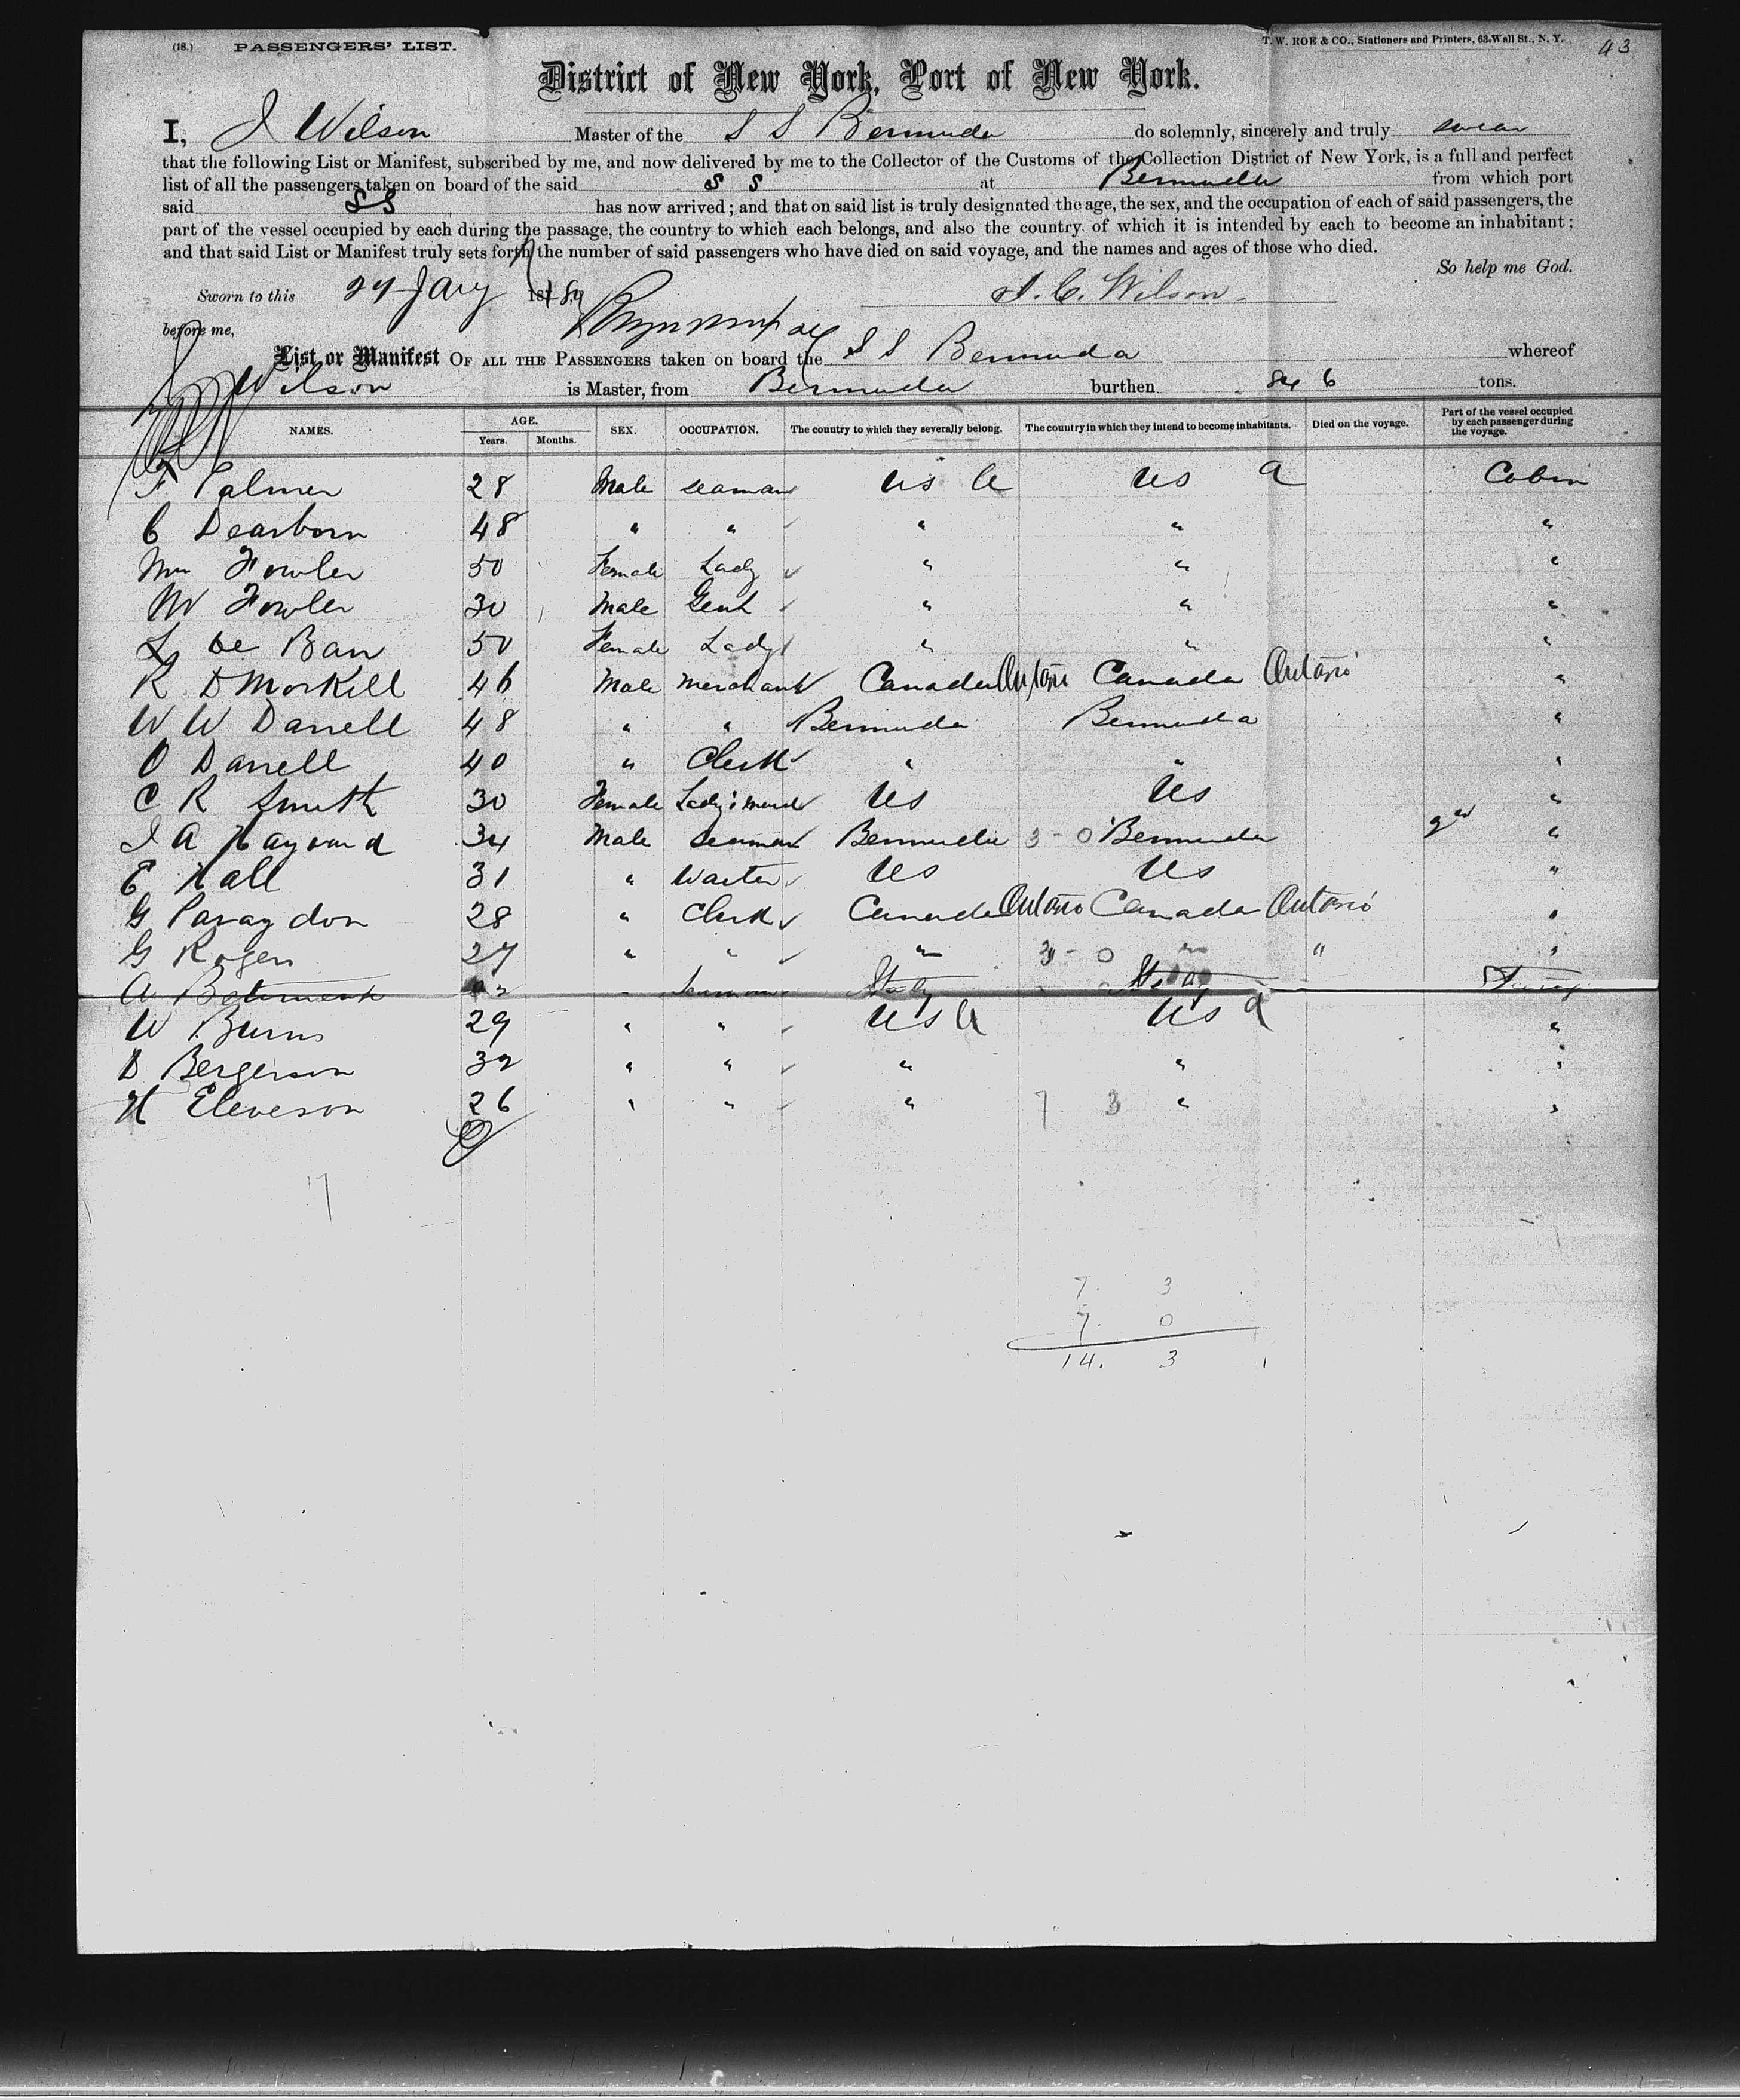 (18.) PASSENGERS' LIST. T. W. ROE & CO., Stationers and Printers, 63 Wall St., N. Y. 43
District of New York, Port of New York.
I, J Wilson Master of the S S Bermuda do solemnly, sincerely and truly swear
that the following List or Manifest, subscribed by me, and now delivered by me to the Collector of the Customs of the Collection District of New York, is a full and perfect
list of all the passengers taken on board of the said S S at Bermuda from which port
said SS has now arrived; and that on said list is truly designated the age, the sex, and the occupation of each of said passengers, the
part of the vessel occupied by each during the passage, the country to which each belongs, and also the country of which it is intended by each to become an inhabitant;
and that said List or Manifest truly sets forth the number of said passengers who have died on said voyage, and the names and ages of those who died.
So help me God.
Sworn to this Jany J. C. Wilson
before me,
List or Manifest OF ALL THE PASSENGERS taken on board the S S Bermuda whereof
Wilson is Master, from Bermuda burthen tons.
NAMES. AGE. Years. Months. SEX. OCCUPATION. The country to which they severally belong. The country in which they intend to become inhabitants. Died on the voyage. Part of the vessel occupied by each passenger during the voyage.
F Palmer 28 Male seaman US A US A Cabin
C Dearborn 48 " " " " "
Mrs Fowler 50 Female Lady " " "
W Fowler 30 Male Gent " " "
L De Ban 50 Female Lady " " "
R D Morkill 46 Male Merchant Canada Ontario Canada Ontario "
W W Darrell 48 " " Bermuda Bermuda "
O Darrell 40 " Clerk " " "
C R Smith 30 Female Lady's maid US US "
J A Hayward 34 Male Seaman Bermuda 3 - 0 Bermuda "
E Hall 31 " Waiter US US "
G Paraydon 28 " Clerk Canada Ontario Canada Ontario "
G Rogers 27 " " " 3 - 0 " " "
A " Seaman Italy Italy
W Burns 29 " " US A US A "
D Bergerson 32 " " " " "
H Eleveson 26 " " " 7 3 " "
17
7. 3
7. 0
14. 3